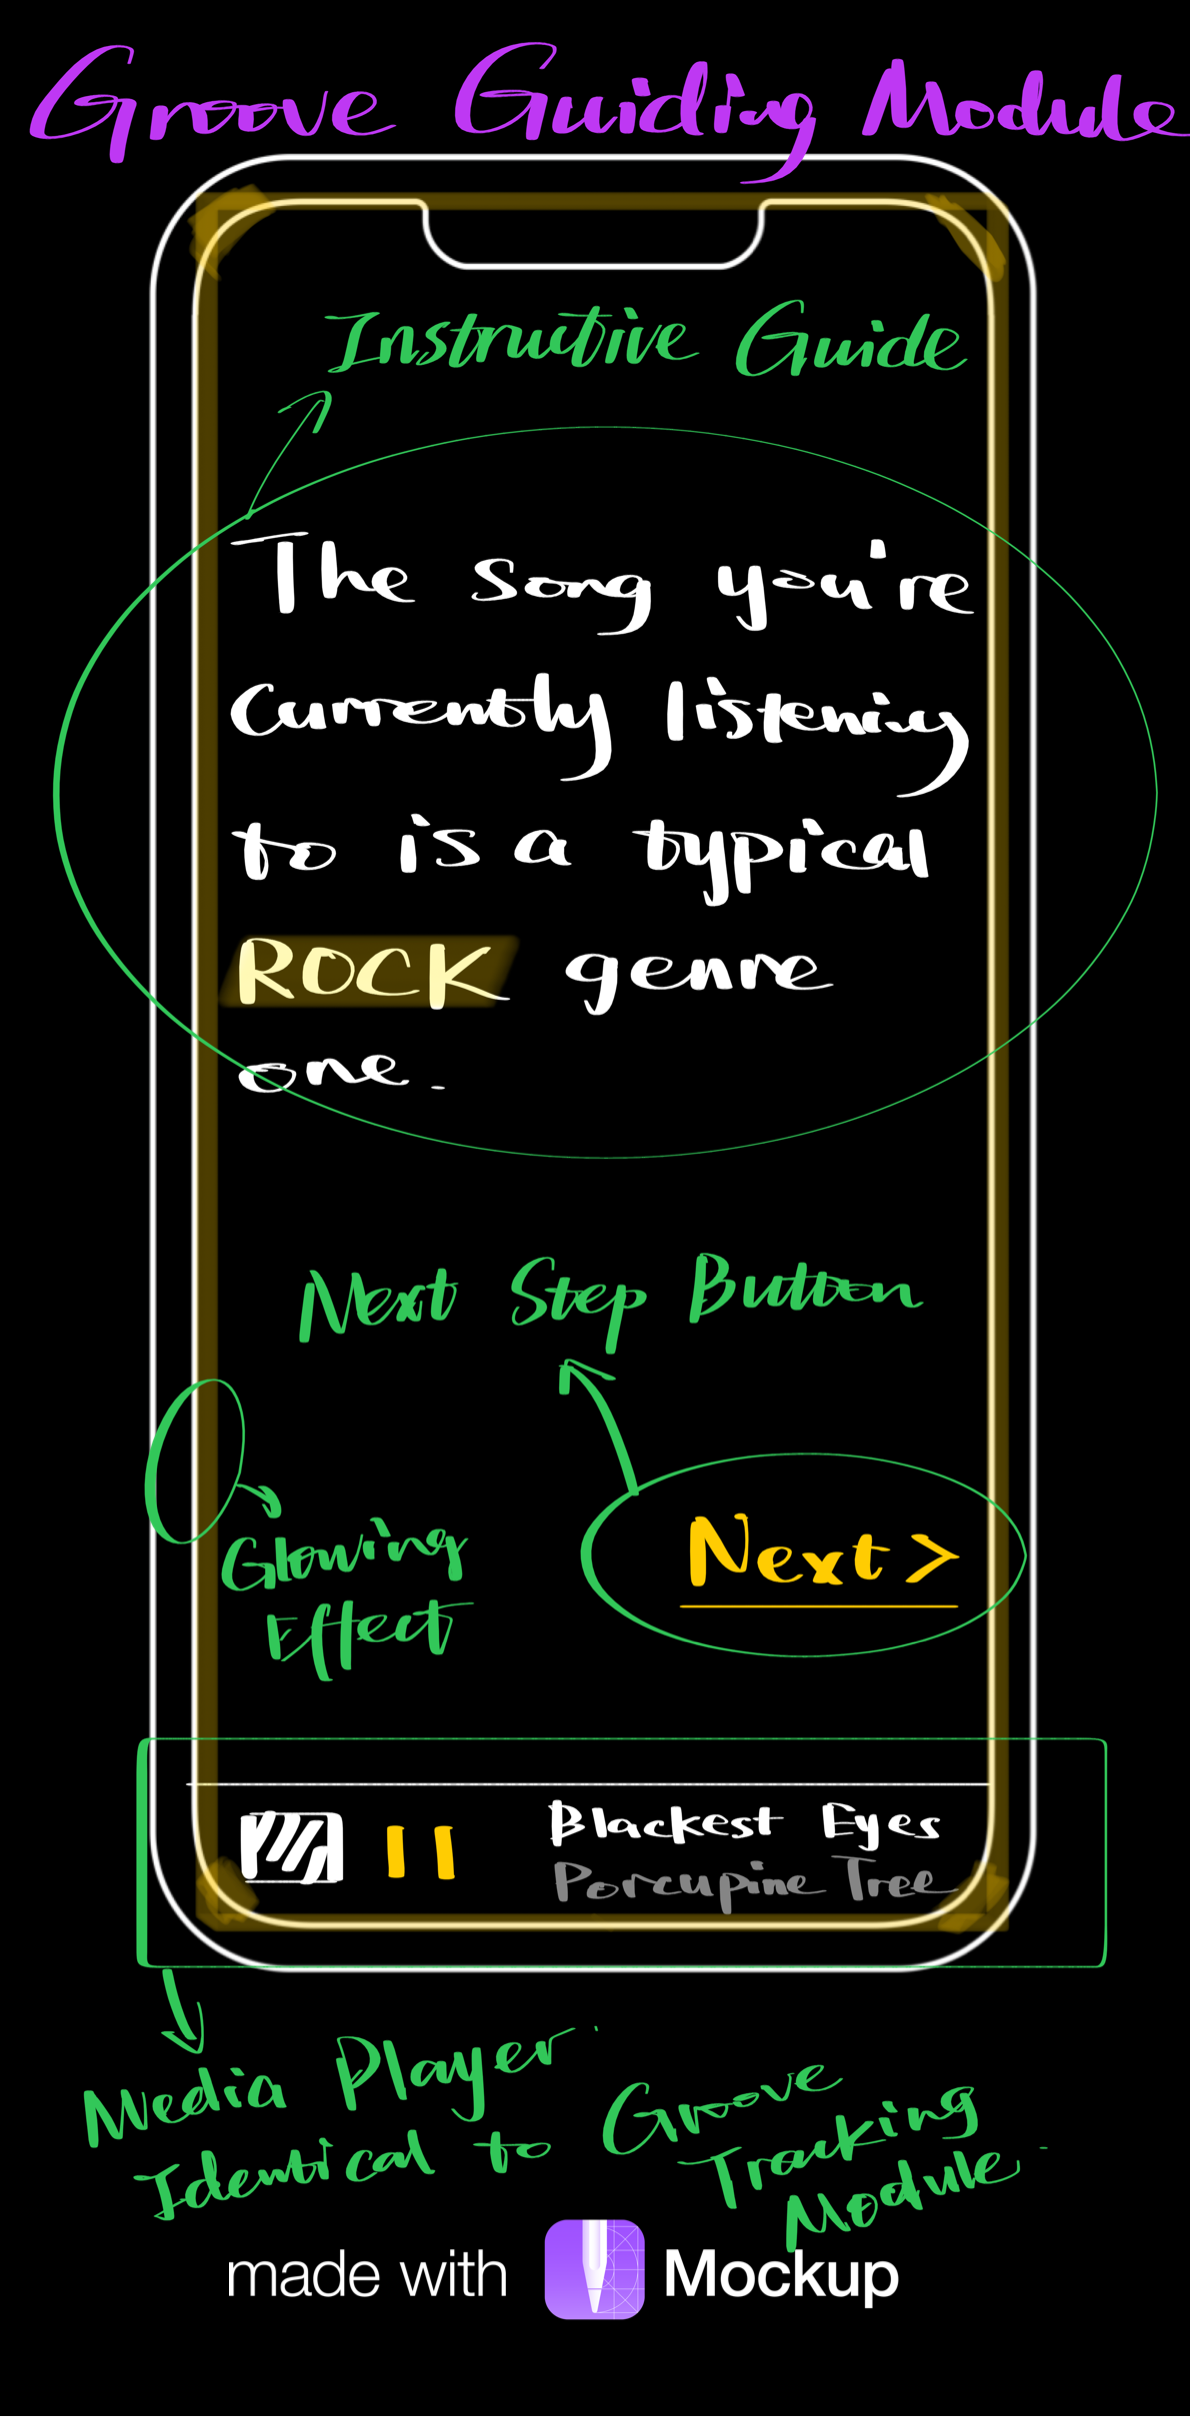 Groove Guiding Module
Instructive Guide
The song you're
currently listening
to is a typical
ROCK genre
one.
Next Step Button
Glowing
Effect
Next >
Blackest Eyes
Porcupine Tree
Media Player.
Identical to Groove
Tracking
Module.
made with Mockup